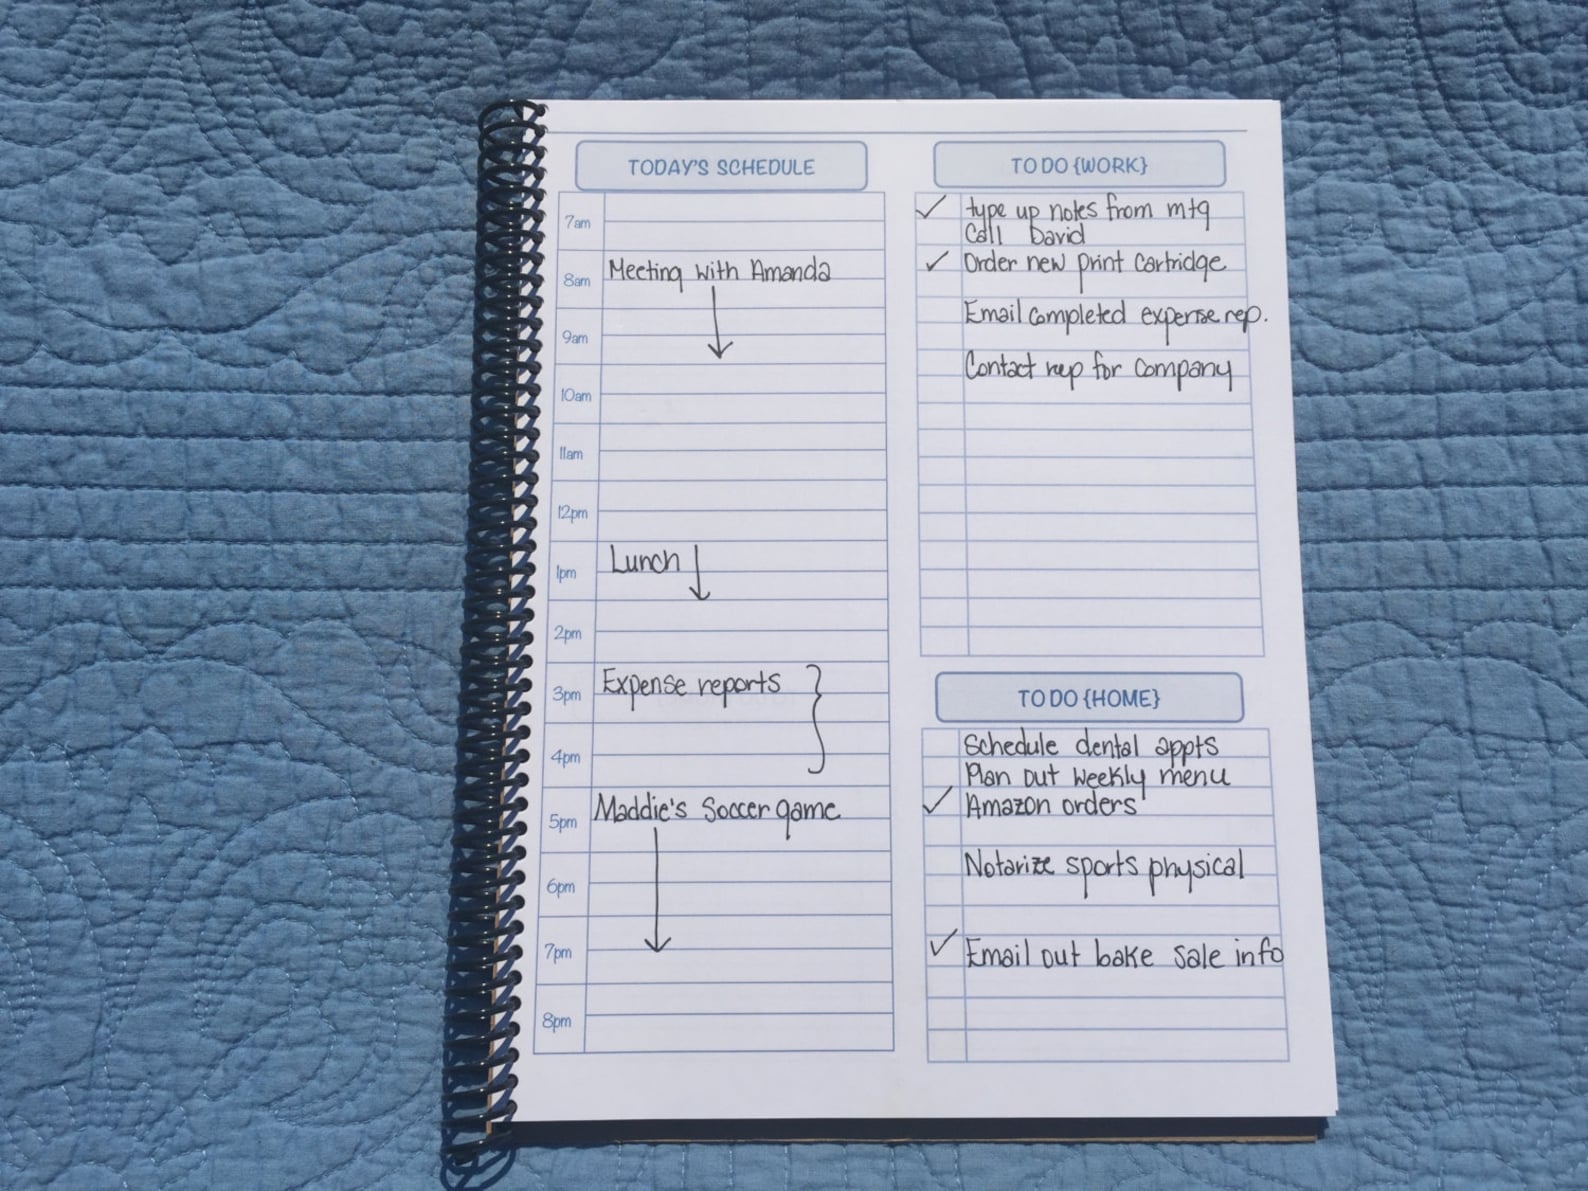 TODAY'S SCHEDULE
7am
8am Meeting with Amanda
9am
10am
11am
12pm
1pm Lunch
2pm
3pm Expense reports
4pm
5pm Maddie's Soccer game
6pm
7pm
8pm
TO DO {WORK}
✓ type up notes from mtg
Call David
✓ Order new print cartridge
Email completed expense rep.
Contact rep for company
TO DO {HOME}
Schedule dental appts
Plan out weekly menu
✓ Amazon orders
Notarize sports physical
✓ Email out bake sale info